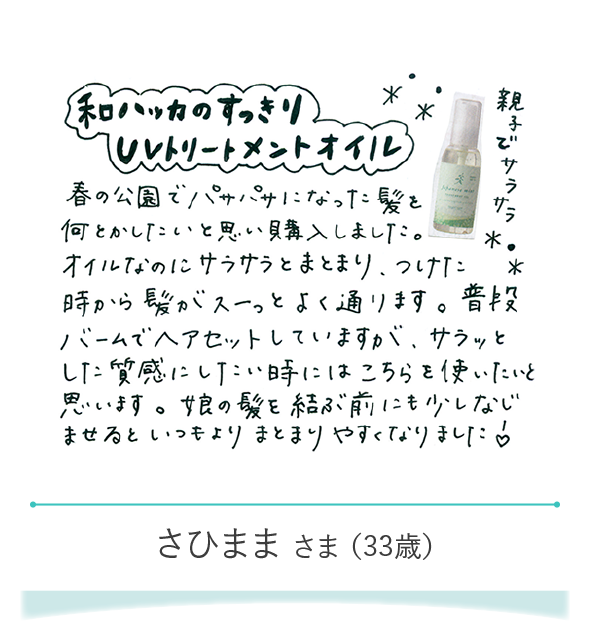 和ハッカのすっきり
UVトリートメントオイル
親子でサラサラ
春の公園でパサパサになった髪を
何とかしたいと思い購入しました。
オイルなのにサラサラとまとまり、つけた
時から髪がスーっとよく通ります。普段
バームでヘアセットしていますが、サラッと
した質感にしたい時にはこちらを使いたいと
思います。娘の髪を結ぶ前にも少しなじ
ませるといつもよりまとまりやすくなりました♡
さひまま さま（33歳）